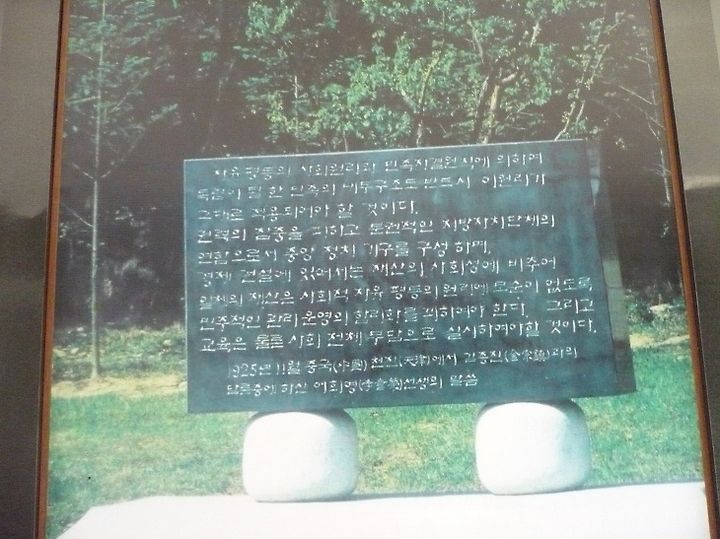 자유평등의 사회원리와 민족자결원칙에 의하여
독립이 된 한 민족의 내부구조도 반드시 이원리가
그대로 적용되어야 할 것이다.
권력의 집중을 피하고 독립적인 지방자치단체의
연합으로서 중앙 정치 기구를 구성 하며,
경제 건설에 있어서는 재산의 사회성에 비추어
일체의 재산은 사회적 자유 평등의원리에 모순이 없도록
민주적인 관리 운영의 합리화를 꾀하여야 한다. 그리고
교육은 물론 사회 전체 부담으로 실시하여야할 것이다.
1925년 11월 중국(中國) 천진(天津)에서 김종진(金宗鎭)과의
담론중에 하신 이회영(李會榮)선생의 말씀